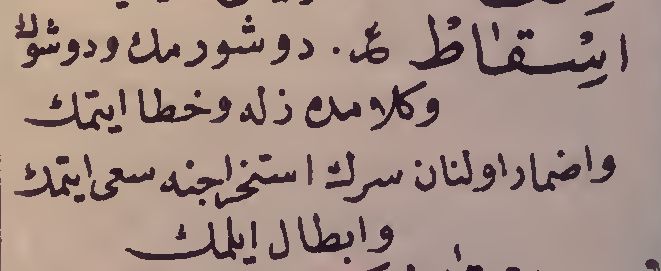 اسقاط ع. دوشورمك ودوشوك
وكلامده زله وخطا ايتمك
واضمار اولنان سرك استخراجنه سعى ايتمك
وابطال ايلمك